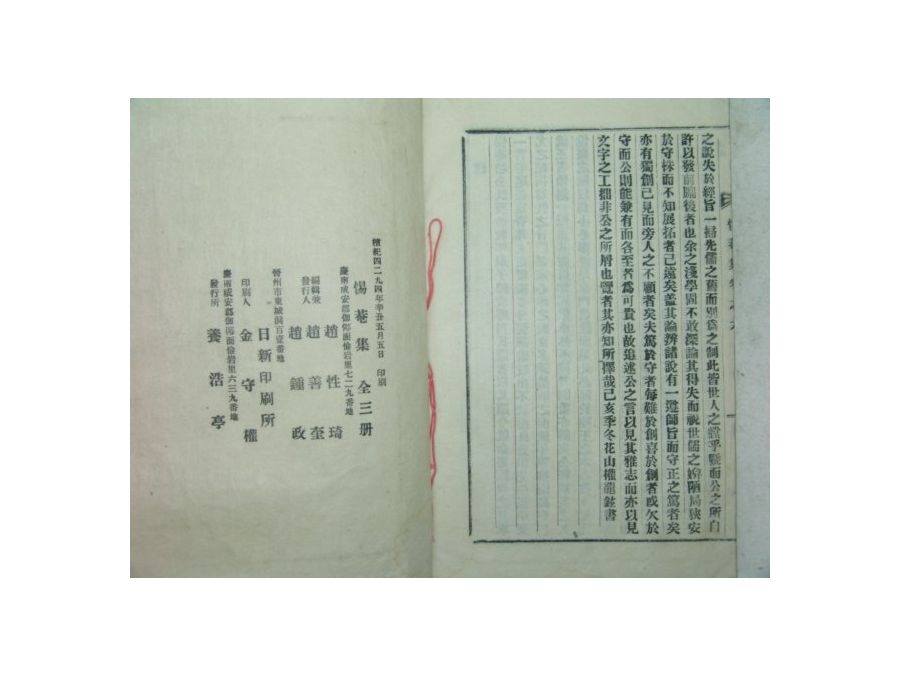 之說失於經旨一掃先儒之舊而別爲之制此皆世人之 乎 而公之所自
許以發前 後者也余之淺學固不敢深論其得失而視世儒之 陋局 安
於守株而不知展拓者已遠矣盖其論辨諸說有一遵師旨而守正之篤者矣
亦有獨創己見而旁人之不顧者矣夫篤於守者每難於創喜於創者或欠於
守而公則能兼有而各至者爲可貴也故追述公之言以見其雅志而亦以見
文字之工拙非公之所屑也覽者其亦知所擇哉己亥季冬花山權龍鉉書
檀紀四二九四年辛丑五月五日 印刷
惕菴集全三册
慶南咸安郡伽倻面儉岩里七二九番地
趙性琦
編輯兼發行人 趙善奎
趙鍾政
晉州市東城洞百壹番地
日新印刷所
印刷人 金守權
慶南咸安郡伽倻面儉岩里六三九番地
發行所 養浩亭